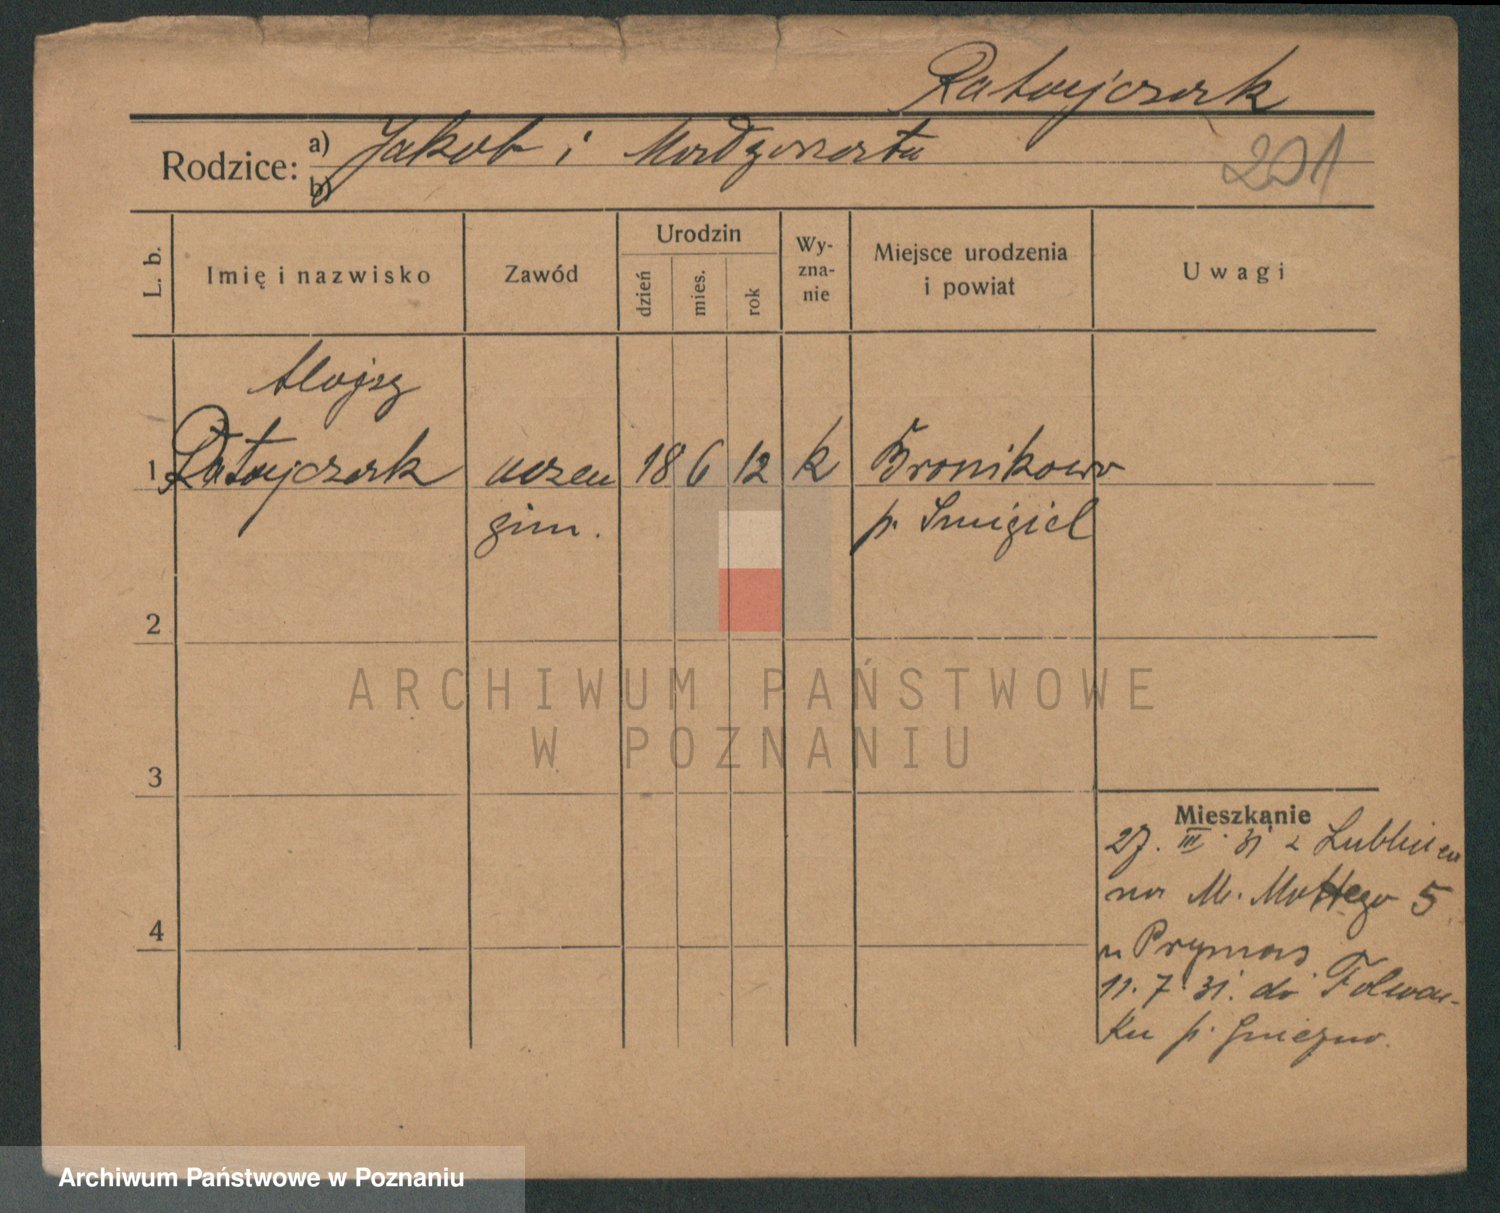 Ratajczak
Rodzice: a) Jakob i Małgorzata
b)
201
L. b.
Imię i nazwisko
Zawód
Urodzin
dzień
mies.
rok
Wy-
zna-
nie
Miejsce urodzenia
i powiat
Uwagi
Alojzy
1 Ratajczak uczeń 18 6 12 k Bronikowo
gim. p. Śmigiel
2
ARCHIWUM PAŃSTWOWE
W POZNANIU
3
Mieszkanie
27. III. 31 z Lublina
na M. Mottego 5
u Prymas
11. 7. 31. do Folwar-
4
ku p. Gniezno.
Archiwum Państwowe w Poznaniu